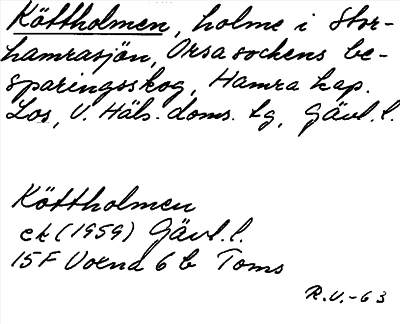 Köttholmen, holme i Stor-
hamrasjön, Orsa sockens be-
sparingsskog, Hamra kap.
Los, V. Häls. doms. tg, Gävl. l.
Köttholmen
ek (1959) Gävl. l.
15F Voxna 6 b Toms
R.V.-63